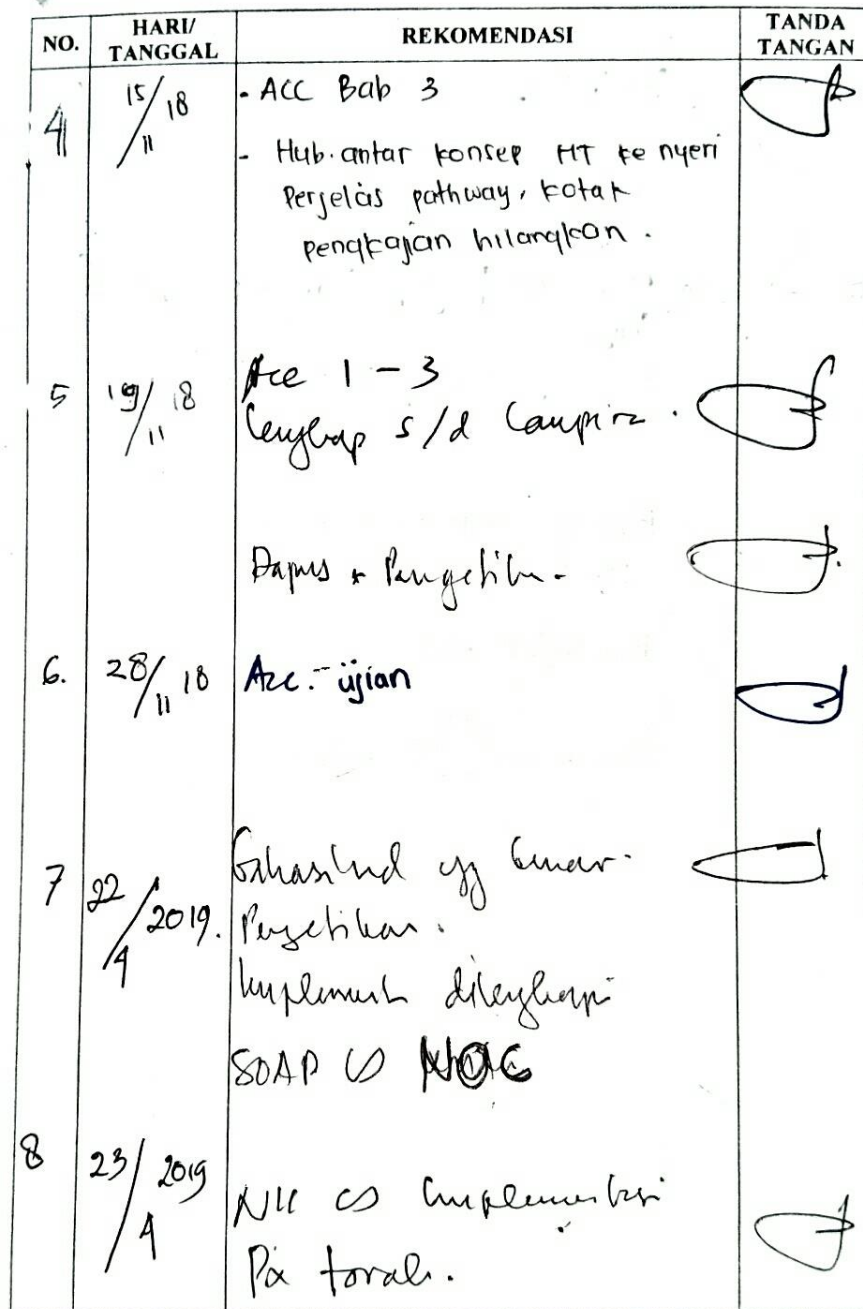 NO. HARI/ TANGGAL REKOMENDASI TANDA TANGAN
4 15/11 18 - ACC Bab 3
- Hub. antar konsep HT ke nyeri
Perjelas pathway, kotak
pengkajian hilangkan.
5 19/11 18 Acc 1 - 3
Lengkap s/d Lampira
Dapus + Pengetikan
6. 28/11 18 Acc - ujian
7 22/4 2019. yg benar
Pengetikan.
Implementasi dilengkapi
SOAP NOC
8 23/4 2019 Implementasi